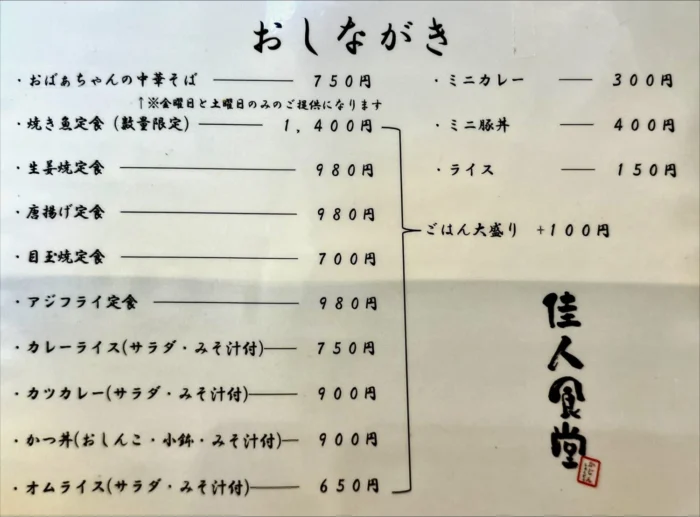 おしながき
・おばぁちゃんの中華そば ―――― 750円
↑※金曜日と土曜日のみのご提供になります
・焼き魚定食（数量限定）――― 1,400円
・生姜焼定食 ―――――――― 980円
・唐揚げ定食 ―――――――― 980円
・目玉焼定食 ―――――――― 700円
・アジフライ定食 ―――――― 980円
・カレーライス(サラダ・みそ汁付)―― 750円
・カツカレー(サラダ・みそ汁付) ―― 900円
・かつ丼(おしんこ・小鉢・みそ汁付)― 900円
・オムライス(サラダ・みそ汁付)―― 650円
・ミニカレー ―― 300円
・ミニ豚丼 ―― 400円
・ライス ―― 150円
ごはん大盛り +100円
佳人食堂